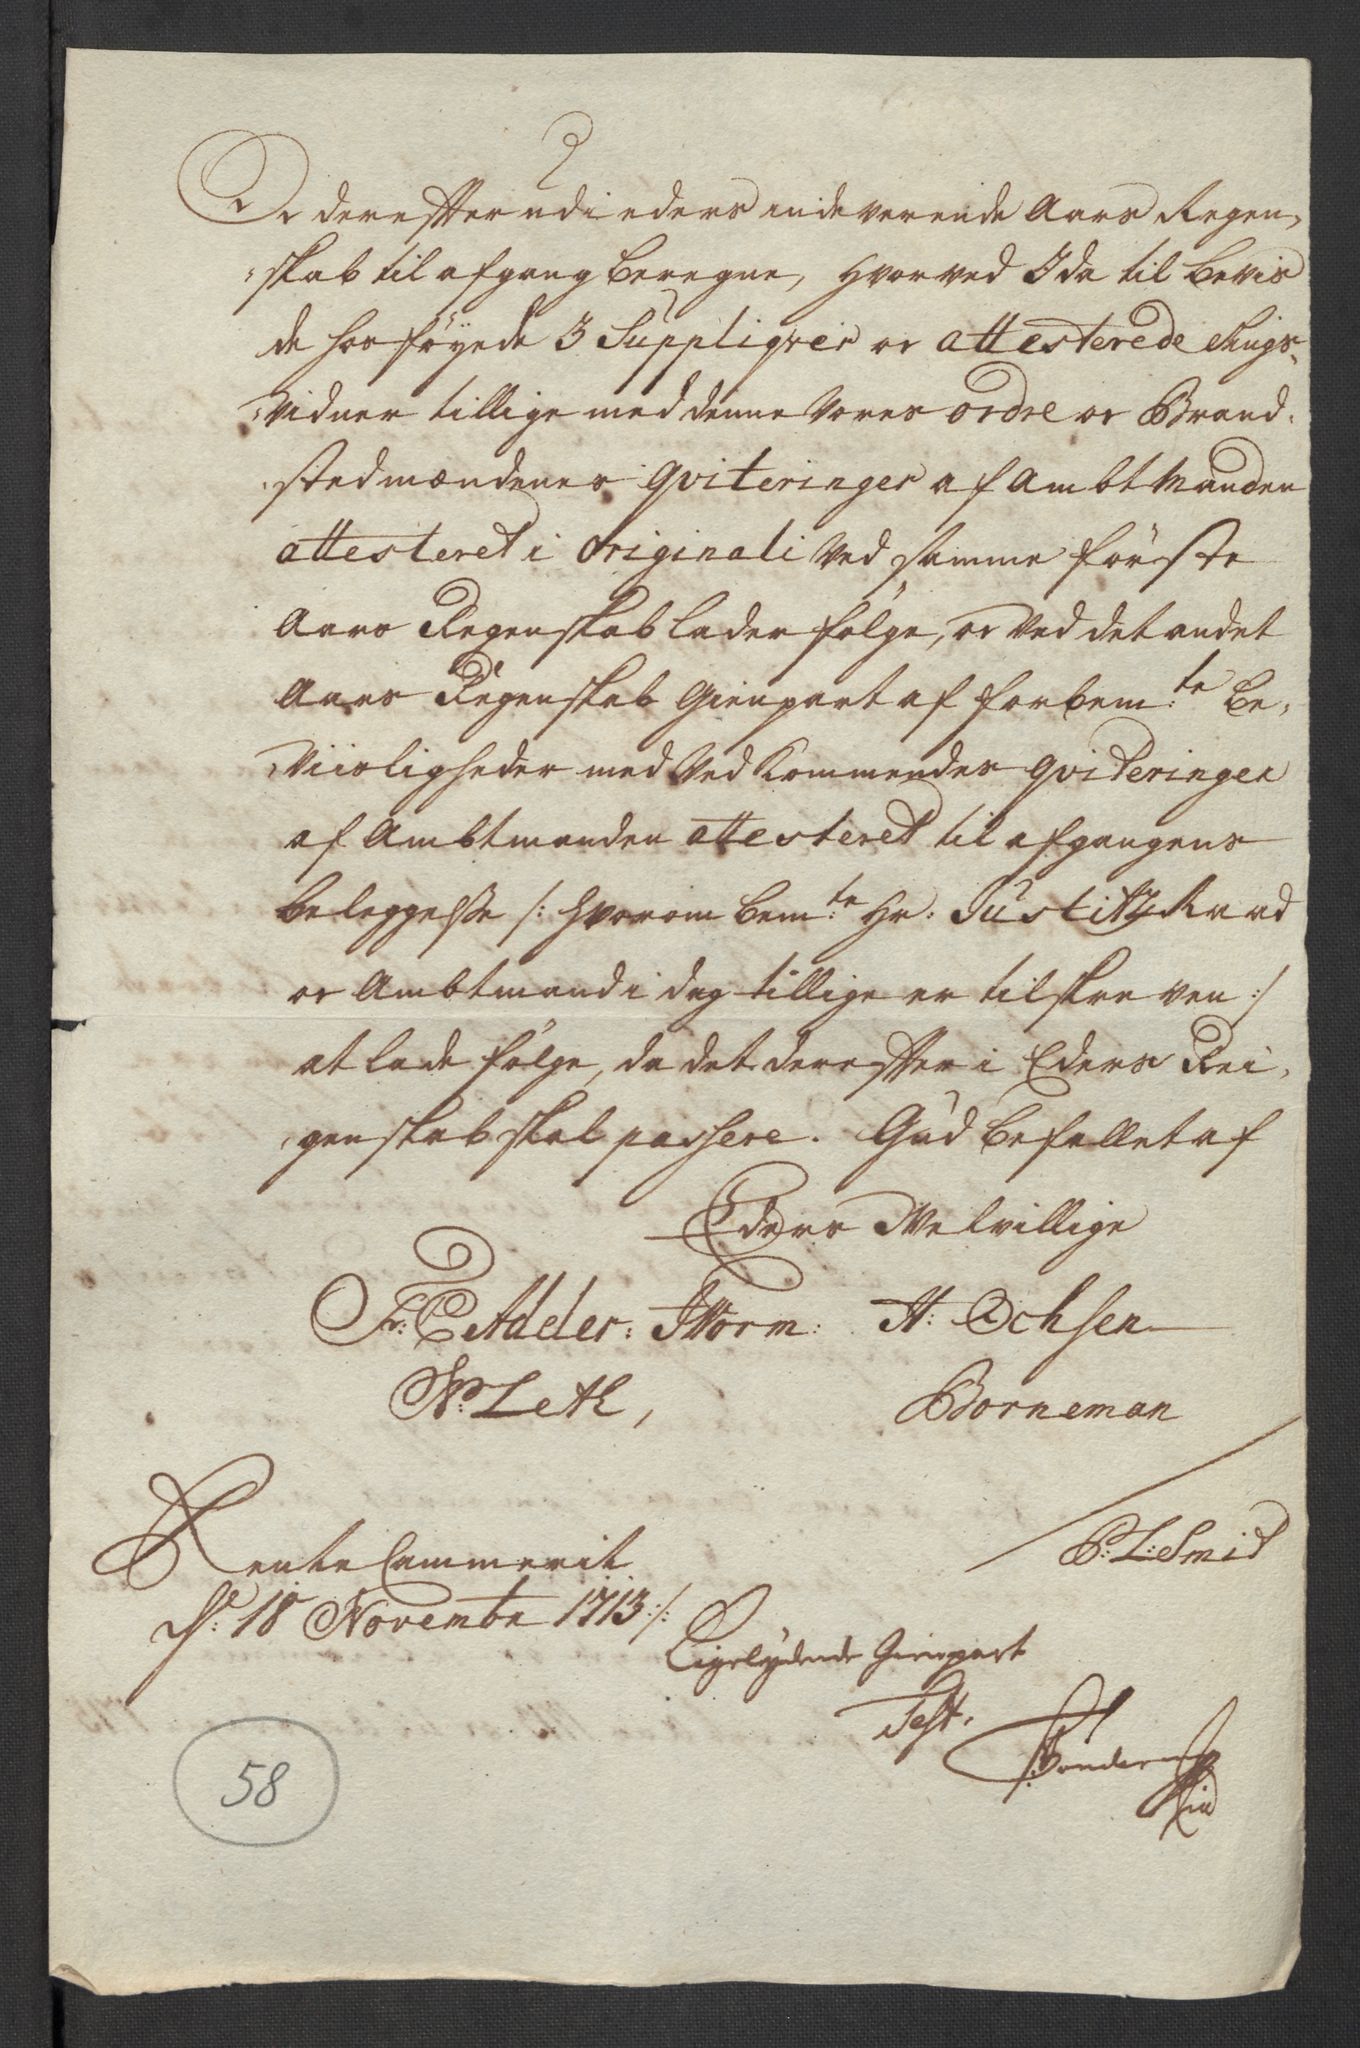 De derefter udi eders indeverende Aars Regen,
skab til afgang beregne, hvorved I da til beviis
de hosföyede 3 Suppliqver oc attesterede tings,
vidner tillige med denne vores ordre oc Brand,
stedmændenes qviteringer af Ambtmanden
attesteret i originali ved samme förste
Aars Regenskab lader fölge, oc ved det andet
Aars Regenskab Gienpart af forbem:te be,
viisligheder med vedkommendes qviteringer
af Ambtmanden attesteret til afgangens
beleggelsse /: hvorom bem:te Hr: Justitz Raad
oc Ambtmand i dag tillige er tilskreven :/
at lade fölge, da det derefter i Eders Rei,
genskab skal passere. Gud befallet af
Eders Velvillige
Fr: C Adeler: JWorm: H: Ochsen
N: Leth,
Borneman
P: L: Smid
Rente Cammerit
d: 18 Novembr 1713 :/:
Ligelydende Gienpart
Test.
58